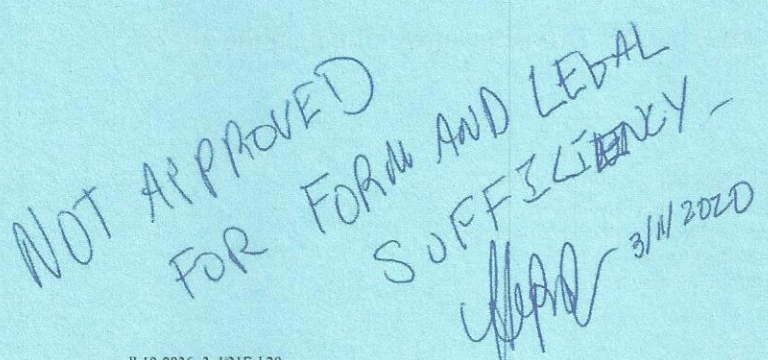 NOT APPROVED
FOR FORM AND LEGAL
SUFFICIENCY -
3/11/2020